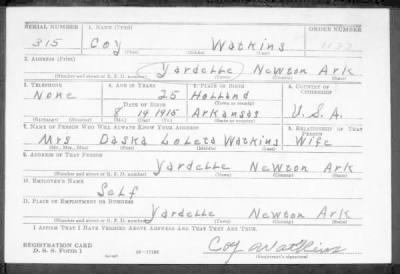 SERIAL NUMBER 1. NAME (Print) ORDER NUMBER
315 Coy Watkins
(First) (Middle) (Last)
2. ADDRESS (Print)
Yardelle Newton Ark
(Number and street or R. F. D. number) (Town) (County) (State)
3. TELEPHONE 4. AGE IN YEARS 5. PLACE OF BIRTH 6. COUNTRY OF CITIZENSHIP
None 25 Holland
DATE OF BIRTH (Town or county)
8 19 1915 Arkansas U.S.A.
(Exchange) (Number) (Mo.) (Day) (Yr.) (State or country)
7. NAME OF PERSON WHO WILL ALWAYS KNOW YOUR ADDRESS 8. RELATIONSHIP OF THAT PERSON
Mrs Daska Loleta Watkins Wife
(Mr., Mrs., Miss) (First) (Middle) (Last)
9. ADDRESS OF THAT PERSON
Yardelle Newton Ark
(Number and street or R. F. D. number) (Town) (County) (State)
10. EMPLOYER'S NAME
Self
11. PLACE OF EMPLOYMENT OR BUSINESS
Yardelle Newton Ark
(Number and street or R. F. D. number) (Town) (County) (State)
I AFFIRM THAT I HAVE VERIFIED ABOVE ANSWERS AND THAT THEY ARE TRUE.
REGISTRATION CARD
D. S. S. Form 1 Coy Watkins
(Registrant's signature)